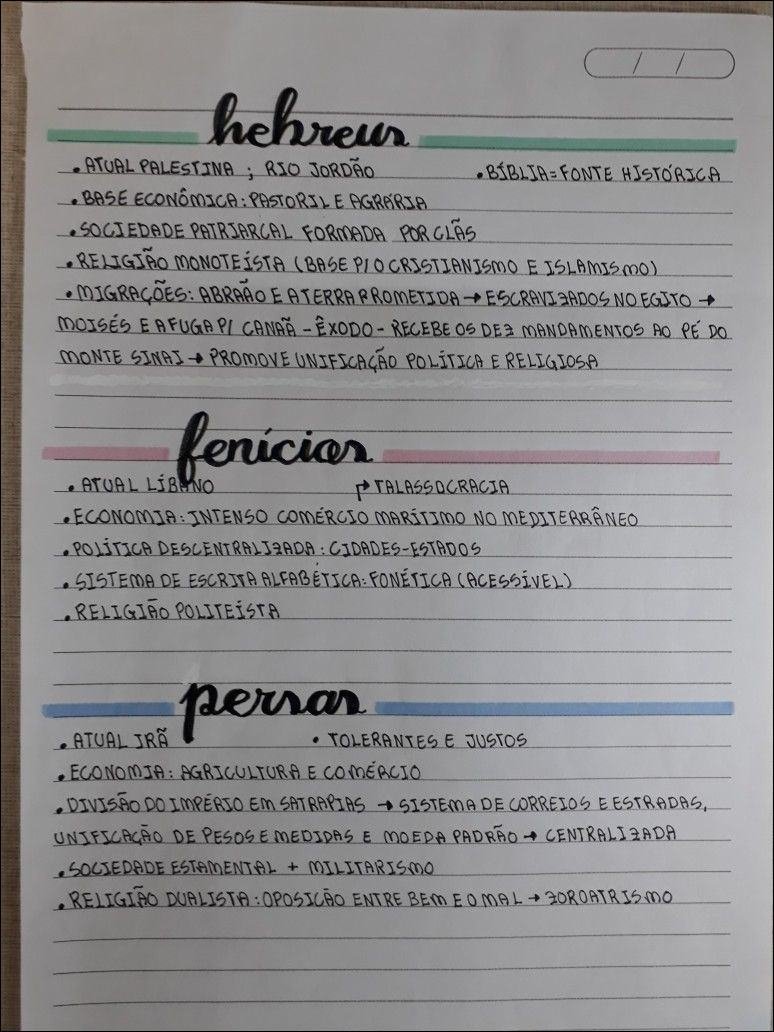 / /
hebreus
• ATUAL PALESTINA ; RIO JORDÃO • BÍBLIA = FONTE HISTÓRICA
• BASE ECONÔMICA: PASTORIL E AGRÁRIA
• SOCIEDADE PATRIARCAL FORMADA POR CLÃS
• RELIGIÃO MONOTEÍSTA (BASE P/ O CRISTIANISMO E ISLAMISMO)
• MIGRAÇÕES: ABRAÃO E A TERRA PROMETIDA → ESCRAVIZADOS NO EGITO →
MOISÉS E A FUGA P/ CANAÃ - ÊXODO - RECEBE OS DEZ MANDAMENTOS AO PÉ DO
MONTE SINAI → PROMOVE UNIFICAÇÃO POLÍTICA E RELIGIOSA
fenícios
• ATUAL LÍBANO ↱ TALASSOCRACIA
• ECONOMIA: INTENSO COMÉRCIO MARÍTIMO NO MEDITERRÂNEO
• POLÍTICA DESCENTRALIZADA: CIDADES-ESTADOS
• SISTEMA DE ESCRITA ALFABÉTICA: FONÉTICA (ACESSÍVEL)
• RELIGIÃO POLITEÍSTA
persas
• ATUAL IRÃ • TOLERANTES E JUSTOS
• ECONOMIA: AGRICULTURA E COMÉRCIO
• DIVISÃO DO IMPÉRIO EM SATRAPIAS → SISTEMA DE CORREIOS E ESTRADAS,
UNIFICAÇÃO DE PESOS E MEDIDAS E MOEDA PADRÃO → CENTRALIZADA
• SOCIEDADE ESTAMENTAL + MILITARISMO
• RELIGIÃO DUALISTA: OPOSICÃO ENTRE BEM E O MAL → ZOROATRISMO